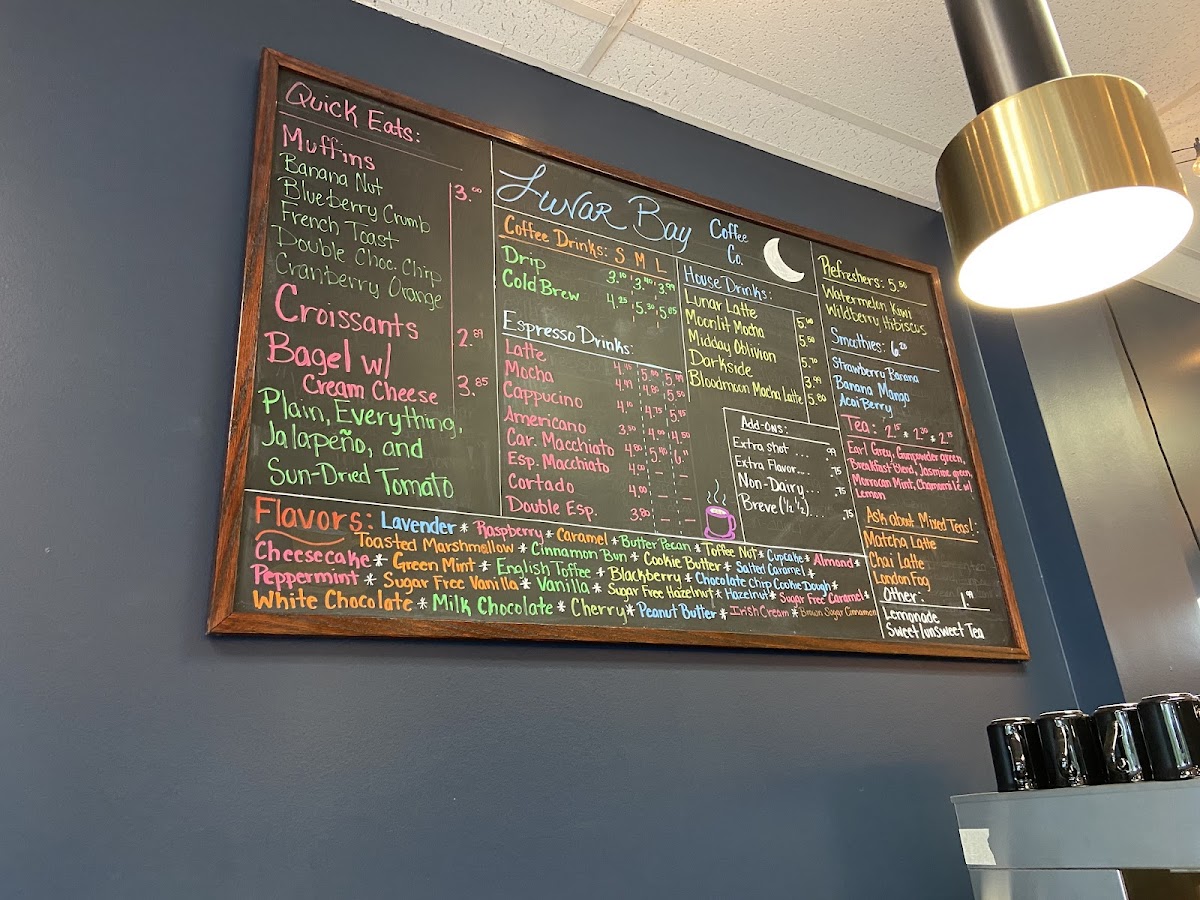 Quick Eats:
Muffins
Banana Nut 3.00
Blueberry Crumb
French Toast
Double Choc. Chip
Cranberry Orange
Croissants 2.89
Bagel w/
Cream Cheese 3.85
Plain, Everything,
Jalapeño, and
Sun-Dried Tomato
Lunar Bay Coffee
Co.
Coffee Drinks: S M L
Drip 3.10 3.40 3.99
Cold Brew 4.25 5.30 5.85
Espresso Drinks:
Latte
Mocha
Cappucino 4.10 4.75 5.45
Americano 3.50 4.00 4.50
Car. Macchiato
Esp. Macchiato
Cortado 4.00 – –
Double Esp. 3.80 – –
House Drinks:
Lunar Latte
Moonlit Mocha 5.50
Midday Oblivion 5.70
Darkside 3.99
Bloodmoon Mocha Latte 5.80
Add-ons:
Extra shot ... .99
Extra Flavor... .75
Non-Dairy... .75
Breve (1/2 1/2).... .75
Refreshers: 5.50
Watermelon Kiwi
Wildberry Hibiscus
Smoothies: 6.25
Strawberry Banana
Banana Mango
Acai Berry
Tea: 2.15 * 2.30 * 2.75
Earl Grey, Gunpowder green,
Breakfast Blend, Jasmine green,
Moroccan Mint, Chamomile w/
Lemon
Ask about Mixed Teas!
Matcha Latte
Chai Latte
London Fog
Other: 1.99
Lemonade
Sweet/unsweet Tea
Flavors: Lavender * Raspberry * Caramel * Butter Pecan * Toffee Nut * Cupcake * Almond *
Toasted Marshmallow * Cinnamon Bun * Cookie Butter * Salted Caramel *
Cheesecake * Green Mint * English Toffee * Blackberry * Chocolate Chip Cookie Dough *
Peppermint * Sugar Free Vanilla * Vanilla * Sugar Free Hazelnut * Hazelnut * Sugar Free Caramel *
White Chocolate * Milk Chocolate * Cherry * Peanut Butter * Irish Cream * Brown Sugar Cinnamon